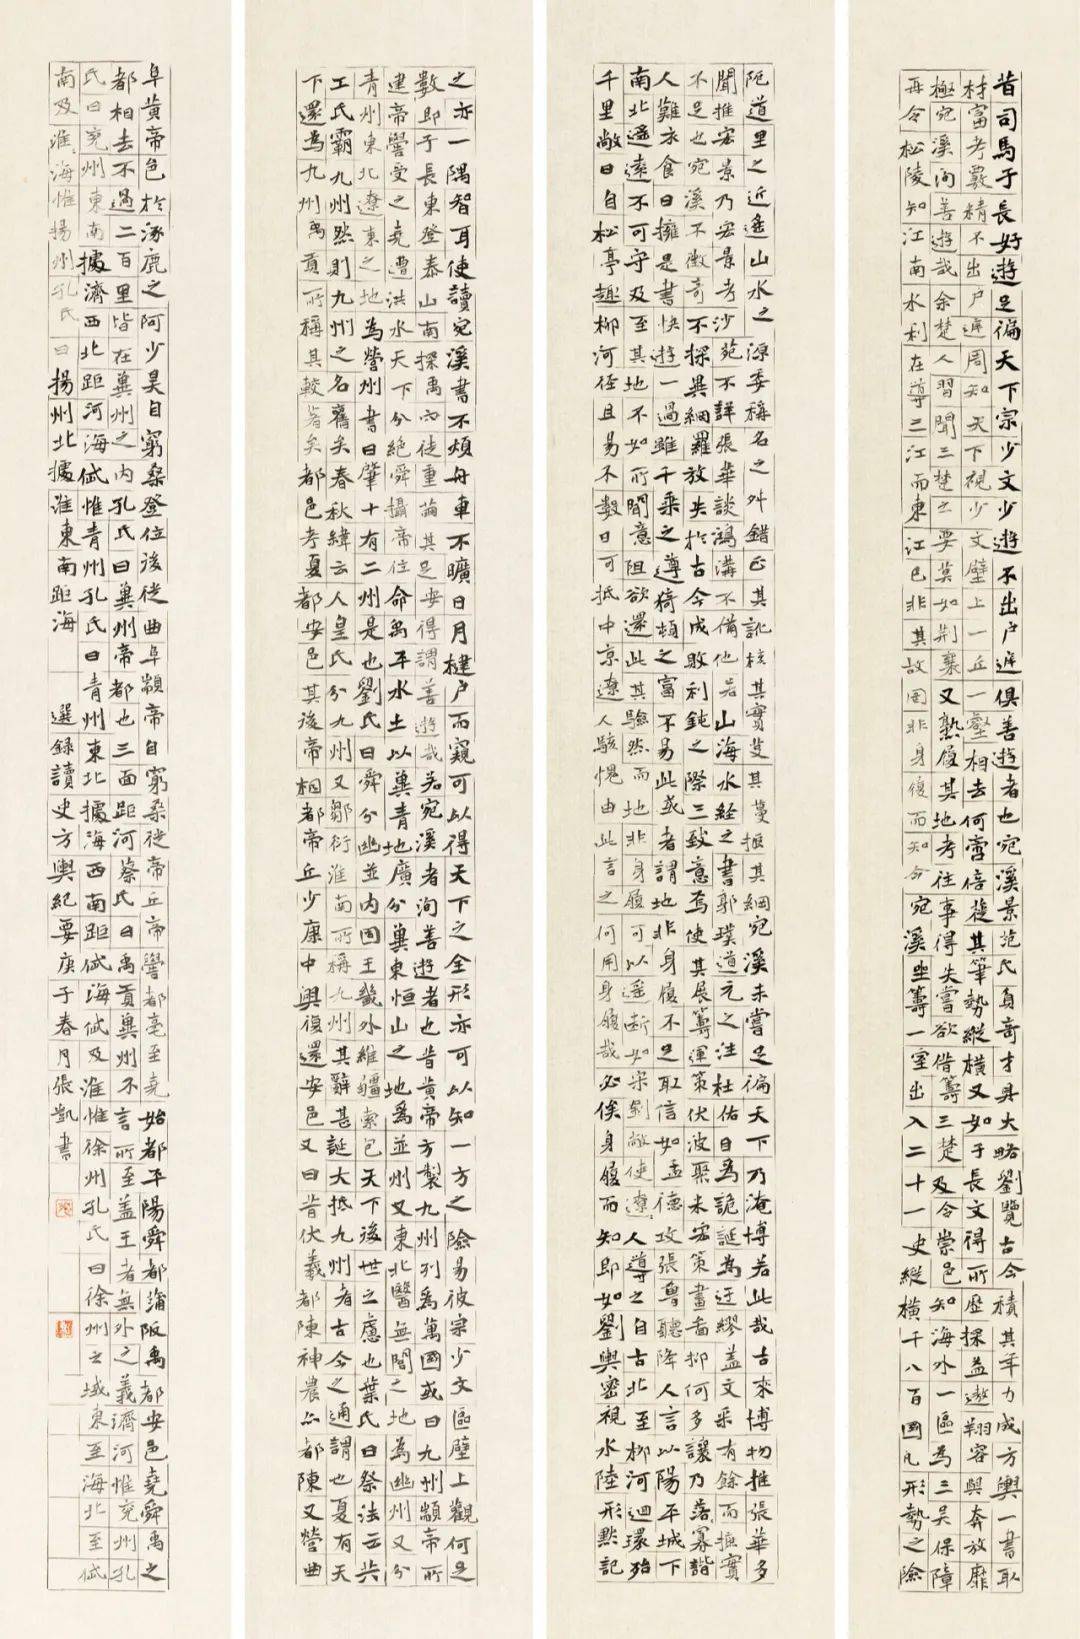 昔司馬子長好遊足徧天下宗少文少遊不出户庭俱善遊者也宛溪景范氏負奇才具大略劉覽古今積其年力成方輿一書取
材富考覈精不出户庭周知天下視少文壁上一丘一壑相去何啻倍蓰其筆勢縱横又如子長文得所歷探益遨翔容與奔放靡
極宛溪洵善遊哉余楚人習聞三楚之要莫如荆襄又熟履其地考往事得失嘗欲借籌三楚及令崇邑知海外一區為三吴保障
再令松陵知江南水利在導三江而東江已非其故因非身履而知今宛溪坐籌一室出入二十一史縱横千八百國凡形勢之險
阨道里之近遥山水之源委稱名之舛錯正其訛核其實芟其蔓振其綱宛溪未嘗足徧天下乃淹博若此哉古來博物推張華多
聞推宏景乃宏景考沙苑不詳張華談鴻溝不備他若山海水經之書郭璞道元之注杜佑自為詭誕為迂繆盖文采有餘而摭實
不足也宛溪不徵奇不探異網羅放失於古今成敗利鈍之際三致意焉使其展籌運策伏波聚米宏策畫抑何多讓乃落寞諧
人難衣食日擁是書快遊一過雖千乘之尊猗頓之富不易此或者謂地非身履不足取信如孟德攻張魯聽降人言以陽平城下
南北遥遠不可守及至其地不如所聞意阻欲還此其驗然而地非身履可以遥断如宋劉敞使遼人導之自古北至柳河迴環殆
千里敞曰自松亭趣柳河徑且易不數日可抵中京遼人駭愧由此言之何用身履哉必俟身履而知即如劉輿密視水陸形默記
之亦一隅智耳使讀宛溪書不煩舟車不曠日月楗户而窺可以得天下之全形亦可以知一方之險易彼宗少文區壁上觀何足
數即子長東登泰山南探禹穴徒重繭其足安得謂善遊哉若宛溪者洵善遊者也昔黄帝方製九州列為萬國或曰九州顓帝所
建帝嚳受之堯遭洪水天下分絶舜攝帝位命禹平水土以兾青地廣分兾東恒山之地為並州又東北醫無閭之地為幽州又分
青州東北遼東之地為營州書曰肇十有二州是也劉氏曰舜分幽並内固王畿外維疆索包天下後世之慮也葉氏曰祭法云共
工氏霸九州然則九州之名舊矣春秋緯云人皇氏分九州又鄒衍淮南所稱九州其辭甚誕大抵九州者古今之通謂也夏有天
下還為九州禹貢所稱其較著矣都邑考夏都安邑其後帝相都帝丘少康中興復還安邑又曰昔伏羲都陳神農亦都陳又營曲
阜黄帝邑於涿鹿之阿少昊自窮桑登位後徙曲阜顓帝自窮桑徙帝丘帝嚳都亳至堯始都平陽舜都蒲阪禹都安邑堯舜禹之
都相去不過二百里皆在兾州之内孔氏曰兾州帝都也三面距河蔡氏曰禹貢兾州不言所至盖王者無外之義濟河惟兖州孔
氏曰兖州東南據濟西北距河海岱惟青州孔氏曰青州東北據海西南距岱海岱及淮惟徐州孔氏曰徐州之域東至海北至岱
南及淮淮海惟揚州孔氏曰揚州北據淮東南距海 選録讀史方輿紀要庚子春月張凱書